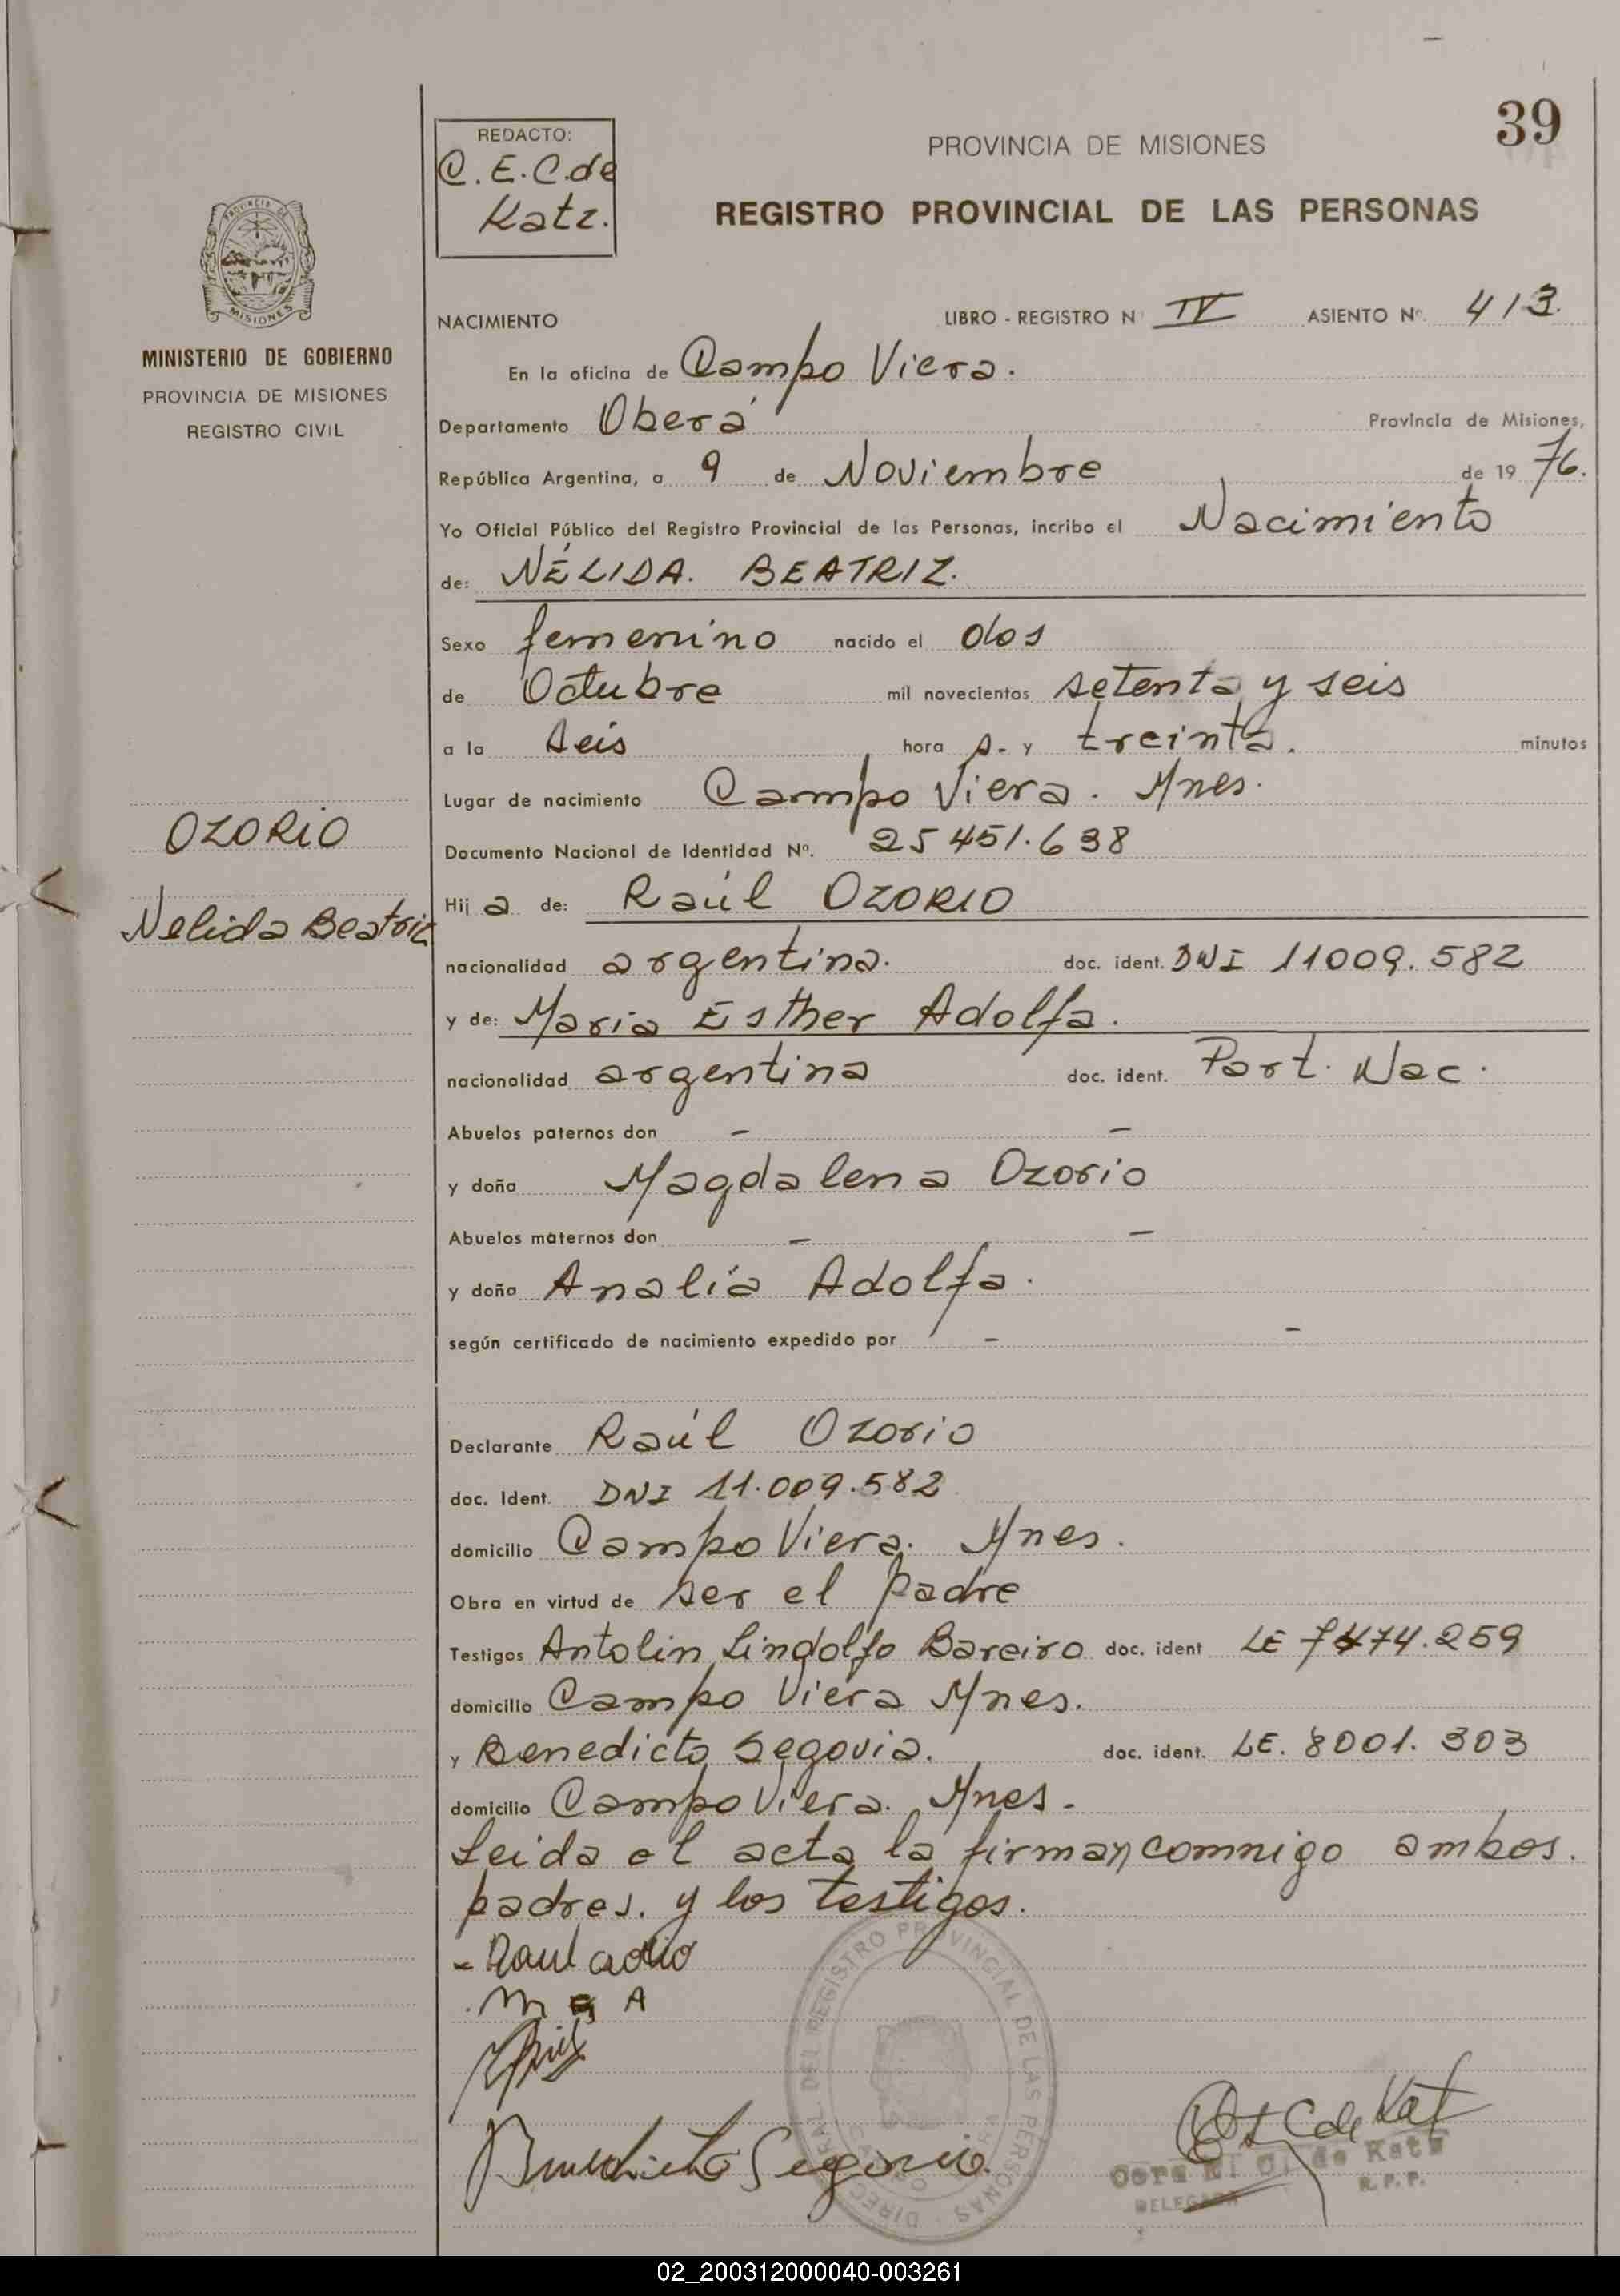 39
REDACTO:
C. E. C. de
Katz.
PROVINCIA DE MISIONES
REGISTRO PROVINCIAL DE LAS PERSONAS
MISIONES
MINISTERIO DE GOBIERNO
PROVINCIA DE MISIONES
REGISTRO CIVIL
NACIMIENTO LIBRO - REGISTRO N IV ASIENTO Nº 413.
En la oficina de Campo Viera.
Departamento Oberá Provincia de Misiones,
República Argentina, a 9 de Noviembre de 19 76.
Yo Oficial Público del Registro Provincial de las Personas, incribo el Nacimiento
de: NÉLIDA. BEATRIZ.
Sexo femenino nacido el dos
de Octubre mil novecientos setenta y seis
a la seis hora s. y treinta. minutos
Lugar de nacimiento Campo Viera. Mnes.
OZORIO
Documento Nacional de Identidad Nº. 25 451.638
Hij a de: Raúl OZORIO
Nelida Beatriz
nacionalidad argentina. doc. ident. DNI 11009.582
y de: Maria Esther Adolfa.
nacionalidad argentina doc. ident. Part. Nac.
Abuelos paternos don - -
y doña Magdalena Ozorio
Abuelos maternos don - -
y doña Analía Adolfa.
según certificado de nacimiento expedido por - -
Declarante Raúl Ozorio
doc. Ident. DNI 11.009.582
domicilio Campo Viera. Mnes.
Obra en virtud de ser el padre
Testigos Antolin Lindolfo Bareiro doc. ident LE 7474.259
domicilio Campo Viera Mnes.
y Benedicto Segovia. doc. ident. LE. 8001. 303
domicilio Campo Viera. Mnes.
Leida el acta la firman commigo ambos.
padres. y los testigos.
- Raul
M E A
Benedicto Segovia
C de Kat
de Katz
DELEGADA R.P.P.
DIREC RAL DEL REGISTRO PROVINCIAL DE LAS PERSONAS
02_200312000040-003261